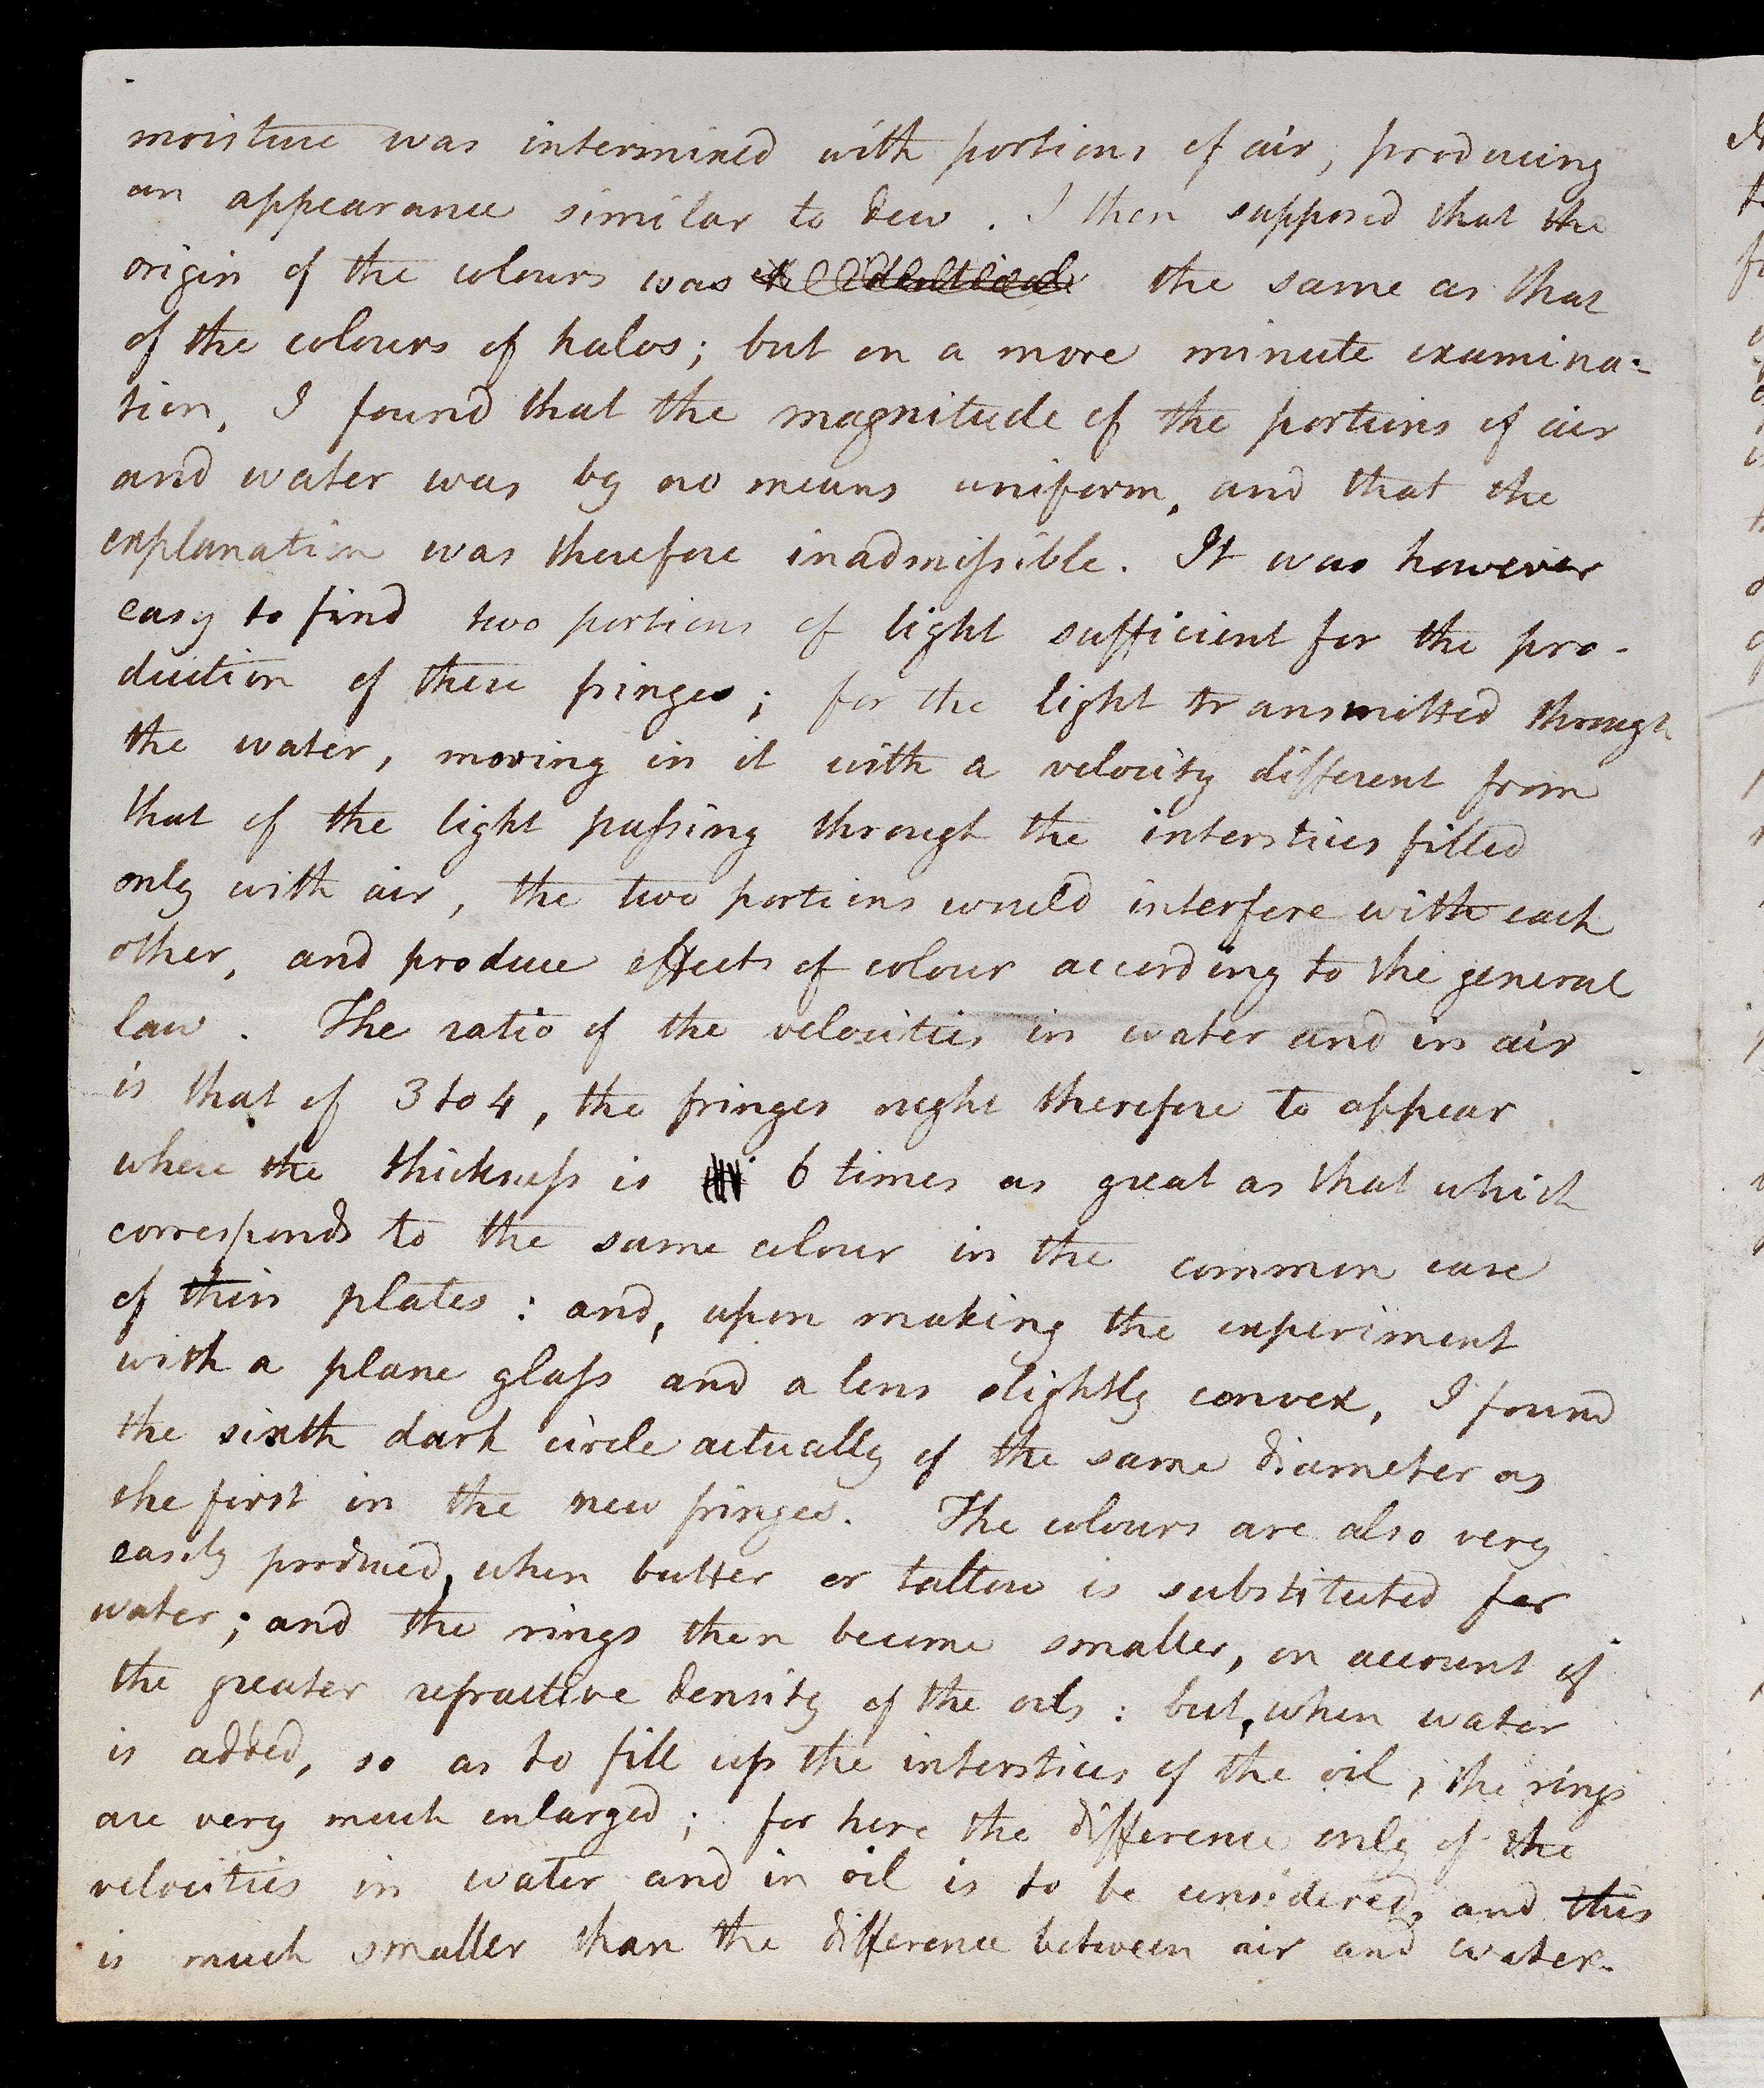 moisture was intermixed with portions of air, producing
an appearance similar to dew. I then supposed that the
origin of the colours was the same as that
of the colours of halos; but on a more minute examina-
tion, I found that the magnitude of the portions of air
and water was by no means uniform, and that the
explanation was therefore inadmissible. It was however
easy to find two portions of light sufficient for the pro-
duction of these fringes; for the light transmitted through
the water, moving in it with a velocity different from
that of the light passing through the interstices filled
only with air, the two portions would interfere with each
other, and produce effects of colour according to the general
law. The ratio of the velocities in water and in air
is that of 3 to 4, the fringes ought therefore to appear
where the thickness is 6 times as great as that which
corresponds to the same colour in the common case
of thin plates: and, upon making the experiment
with a plane glass and a lens slightly convex, I found
the sixth dark circle actually of the same diameter as
the first in the new fringes. The colours are also very
easily produced, when butter or tallow is substituted for
water; and the rings then become smaller, on account of
the greater refractive density of the oils: but, when water
is added, so as to fill up the interstices of the oil, the rings
are very much enlarged; for here the difference only of the
velocities in water and in oil is to be considered, and this
is much smaller than the difference between air and water.